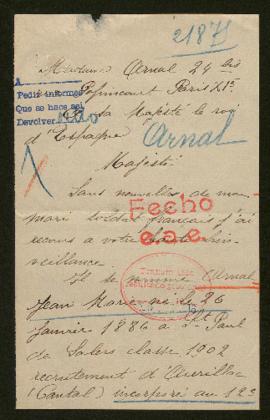 21875
Madame Arnal 24 bis
Popincourt Paris XIe
A
Pedir informes
Que se hace así
Devolver
A Sa Majesté le roi
d'Espagne
Arnal
Majesté
Sans nouvelles de mon
mari soldat français j'ai
recours a votre bien
veillance
Fecho
e.a.e.
Il se nomme Arnal
Jean Marie né le 26
Janvier 1882 a St Paul
de Salers classe 1902
recrutement d'Aurillac
(Cantal) incorporé au 123